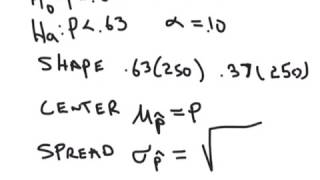 Ho
Ha: P < .63 α = .10
SHAPE .63(250) .37(250)
CENTER μp̂ = P
SPREAD σp̂ = √